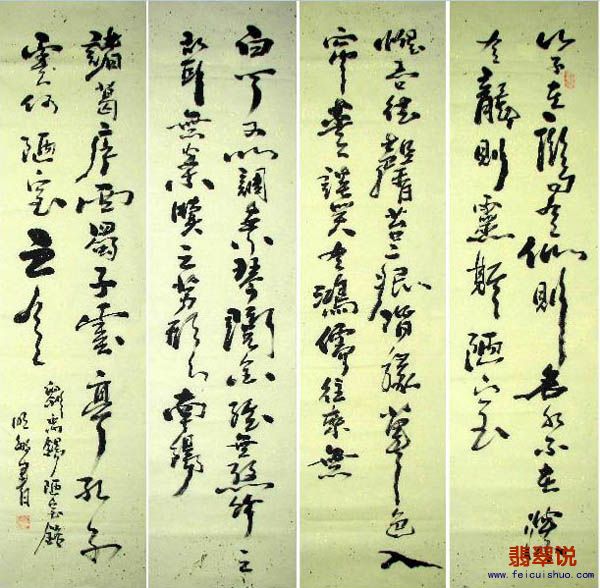 山不在高有仙則名水不在深
有龍則靈斯陋室
惟吾德馨苔痕階緣草色入
簾青談笑有鴻儒往來無
白丁可以調素琴閱金經無絲竹之
亂耳無案牘之勞形南陽
諸葛廬西蜀子雲亭孔子
雲何陋室之有
劉禹錫陋室銘
書
翡翠说
www.feicuishuo.com